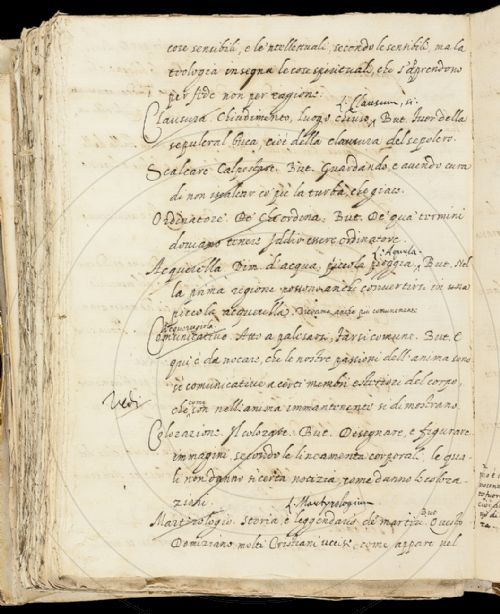 cose sensibili, e le 'ntellettuali, secondo le sensibili, ma la
teologia insegna le cose spirituali, che s'aprendono
per fede non per ragione.
L. Clausum, si.
Clausura. Chiudimento, luogo chiuso. But. Fuor della
sepulcral buca, cioè della clausura del sepolcro.
Scalcare. Calpestare. But. Guardando, e avendo cura
di non iscalcar co' piè la turba, che giace.
Ordinatore. Che ordina. But. De' qua' termini
doviamo tenere Iddio essere ordinatore.
L. Aquula
Acquerella. Dim. d'acqua, piccola pioggia. But. Nel
la prima regione possono anche convertirsi in una
piccola acquerella. Diciamo anche più comunemente
Acquerugiola
Comunicativo. Atto a palesarsi, farsi comune. But. E
qui è da notare, che le nostre passioni dell'anima sono
sì comunicative a certi membri esteriori del corpo,
Vedi
che come son nell'anima immantenente si dimostrano.
Colorazione. Il colorare. But. Disegnare, e figurare
immagini, secondo le lineamenta corporali, le qua
li non danno sì certa notizia, come danno le colora
zioni.
L. Martyrologium
Martirologio. Storia, e leggendario de' martiri. But. Questo
Domiziano molti Cristiani uccise, come appare nel